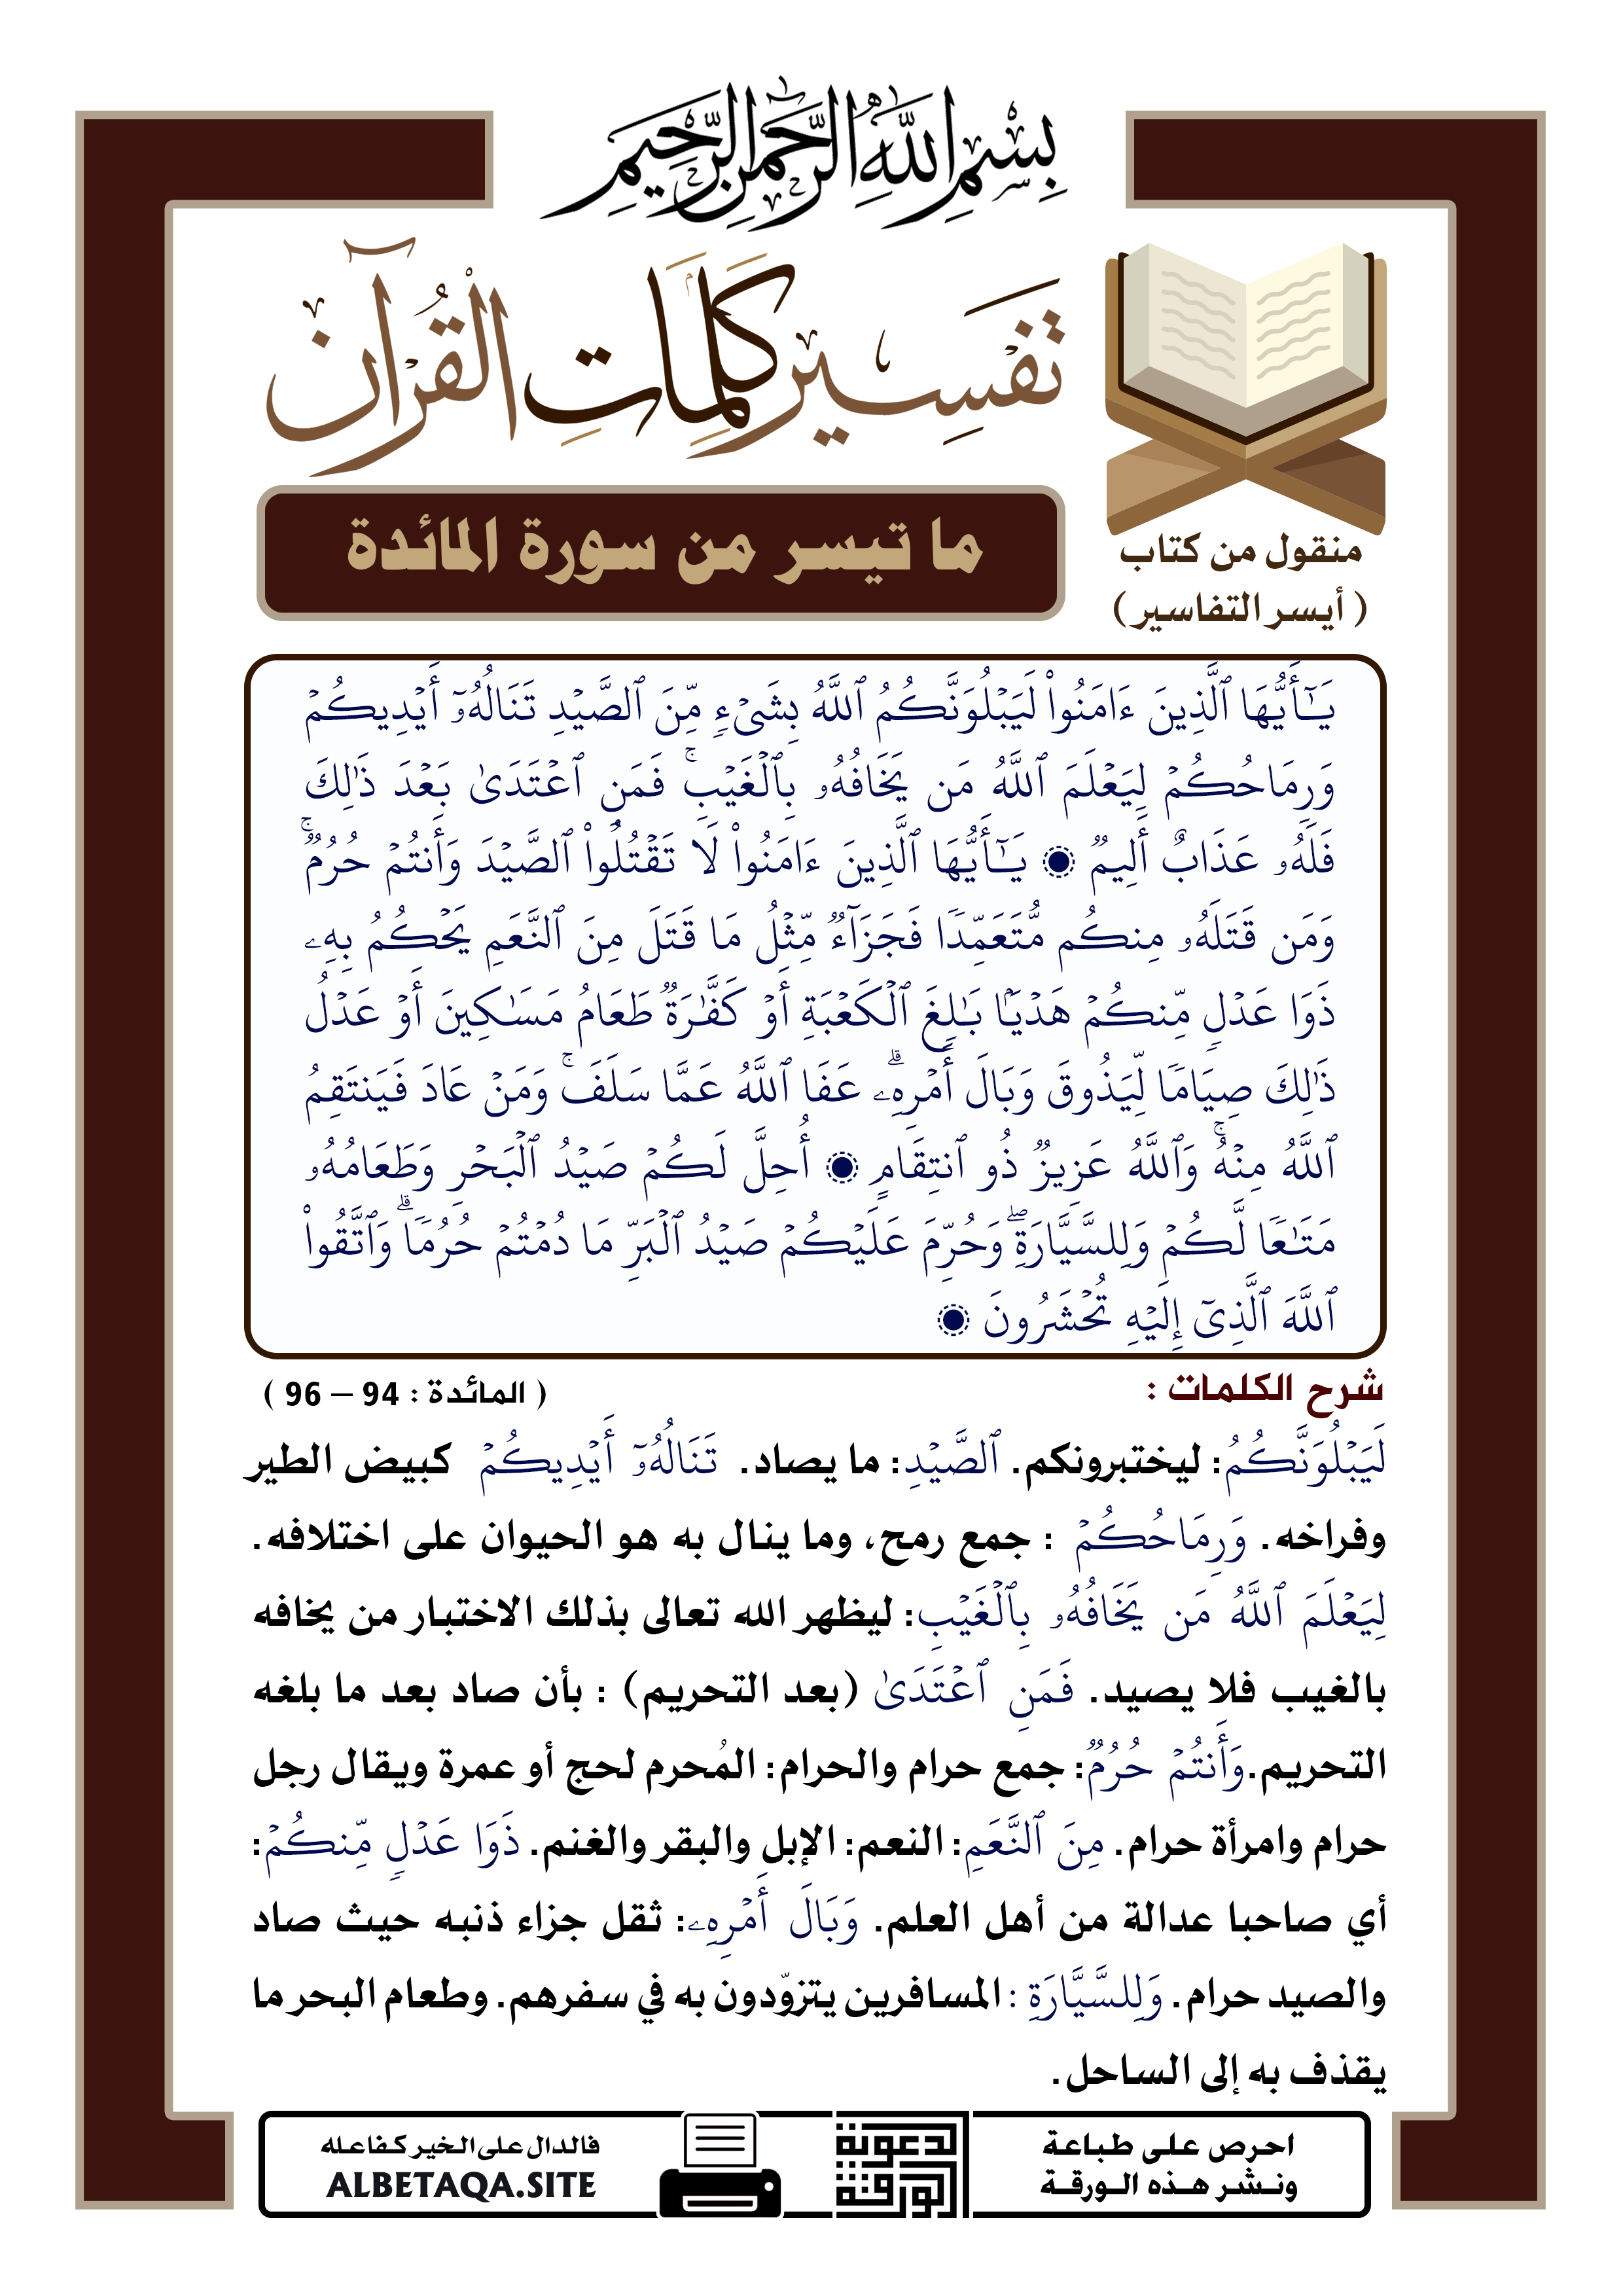 بِسْمِ اللَّهِ الرَّحْمَٰنِ الرَّحِيمِ
تَفْسِير كَلِمَاتِ القُرْآن
منقول من كتاب
( أيسر التفاسير )
ما تيسر من سورة المائدة
يَـٰٓأَيُّهَا ٱلَّذِينَ ءَامَنُوا۟ لَيَبْلُوَنَّكُمُ ٱللَّهُ بِشَىْءٍۢ مِّنَ ٱلصَّيْدِ تَنَالُهُۥٓ أَيْدِيكُمْ
وَرِمَاحُكُمْ لِيَعْلَمَ ٱللَّهُ مَن يَخَافُهُۥ بِٱلْغَيْبِ ۚ فَمَنِ ٱعْتَدَىٰ بَعْدَ ذَٰلِكَ
فَلَهُۥ عَذَابٌ أَلِيمٌۭ ۝ يَـٰٓأَيُّهَا ٱلَّذِينَ ءَامَنُوا۟ لَا تَقْتُلُوا۟ ٱلصَّيْدَ وَأَنتُمْ حُرُمٌۭ ۚ
وَمَن قَتَلَهُۥ مِنكُم مُّتَعَمِّدًۭا فَجَزَآءٌۭ مِّثْلُ مَا قَتَلَ مِنَ ٱلنَّعَمِ يَحْكُمُ بِهِۦ
ذَوَا عَدْلٍۢ مِّنكُمْ هَدْيًۢا بَـٰلِغَ ٱلْكَعْبَةِ أَوْ كَفَّـٰرَةٌۭ طَعَامُ مَسَـٰكِينَ أَوْ عَدْلُ
ذَٰلِكَ صِيَامًۭا لِّيَذُوقَ وَبَالَ أَمْرِهِۦ ۗ عَفَا ٱللَّهُ عَمَّا سَلَفَ ۚ وَمَنْ عَادَ فَيَنتَقِمُ
ٱللَّهُ مِنْهُ ۚ وَٱللَّهُ عَزِيزٌۭ ذُو ٱنتِقَامٍ ۝ أُحِلَّ لَكُمْ صَيْدُ ٱلْبَحْرِ وَطَعَامُهُۥ
مَتَـٰعًۭا لَّكُمْ وَلِلسَّيَّارَةِ ۖ وَحُرِّمَ عَلَيْكُمْ صَيْدُ ٱلْبَرِّ مَا دُمْتُمْ حُرُمًۭا ۗ وَٱتَّقُوا۟
ٱللَّهَ ٱلَّذِىٓ إِلَيْهِ تُحْشَرُونَ ۝
شرح الكلمات :
( المائدة : 94 – 96 )
لَيَبْلُوَنَّكُمُ: ليختبرونكم. ٱلصَّيْدِ: ما يصاد. تَنَالُهُۥٓ أَيْدِيكُمْ كبيض الطير
وفراخه. وَرِمَاحُكُمْ : جمع رمح، وما ينال به هو الحيوان على اختلافه.
لِيَعْلَمَ ٱللَّهُ مَن يَخَافُهُۥ بِٱلْغَيْبِ: ليظهر الله تعالى بذلك الاختبار من يخافه
بالغيب فلا يصيد. فَمَنِ ٱعْتَدَىٰ (بعد التحريم) : بأن صاد بعد ما بلغه
التحريم.وَأَنتُمْ حُرُمٌۭ: جمع حرام والحرام: المُحرم لحج أو عمرة ويقال رجل
حرام وامرأة حرام. مِنَ ٱلنَّعَمِ: النعم: الإبل والبقر والغنم. ذَوَا عَدْلٍۢ مِّنكُمْ:
أي صاحبا عدالة من أهل العلم. وَبَالَ أَمْرِهِۦ: ثقل جزاء ذنبه حيث صاد
والصيد حرام. وَلِلسَّيَّارَةِ : المسافرين يتزوّدون به في سفرهم. وطعام البحر ما
يقذف به إلى الساحل.
احرص على طباعة
ونشر هذه الورقة
الورقة
الدعوية
فالدال على الخير كفاعله
ALBETAQA.SITE